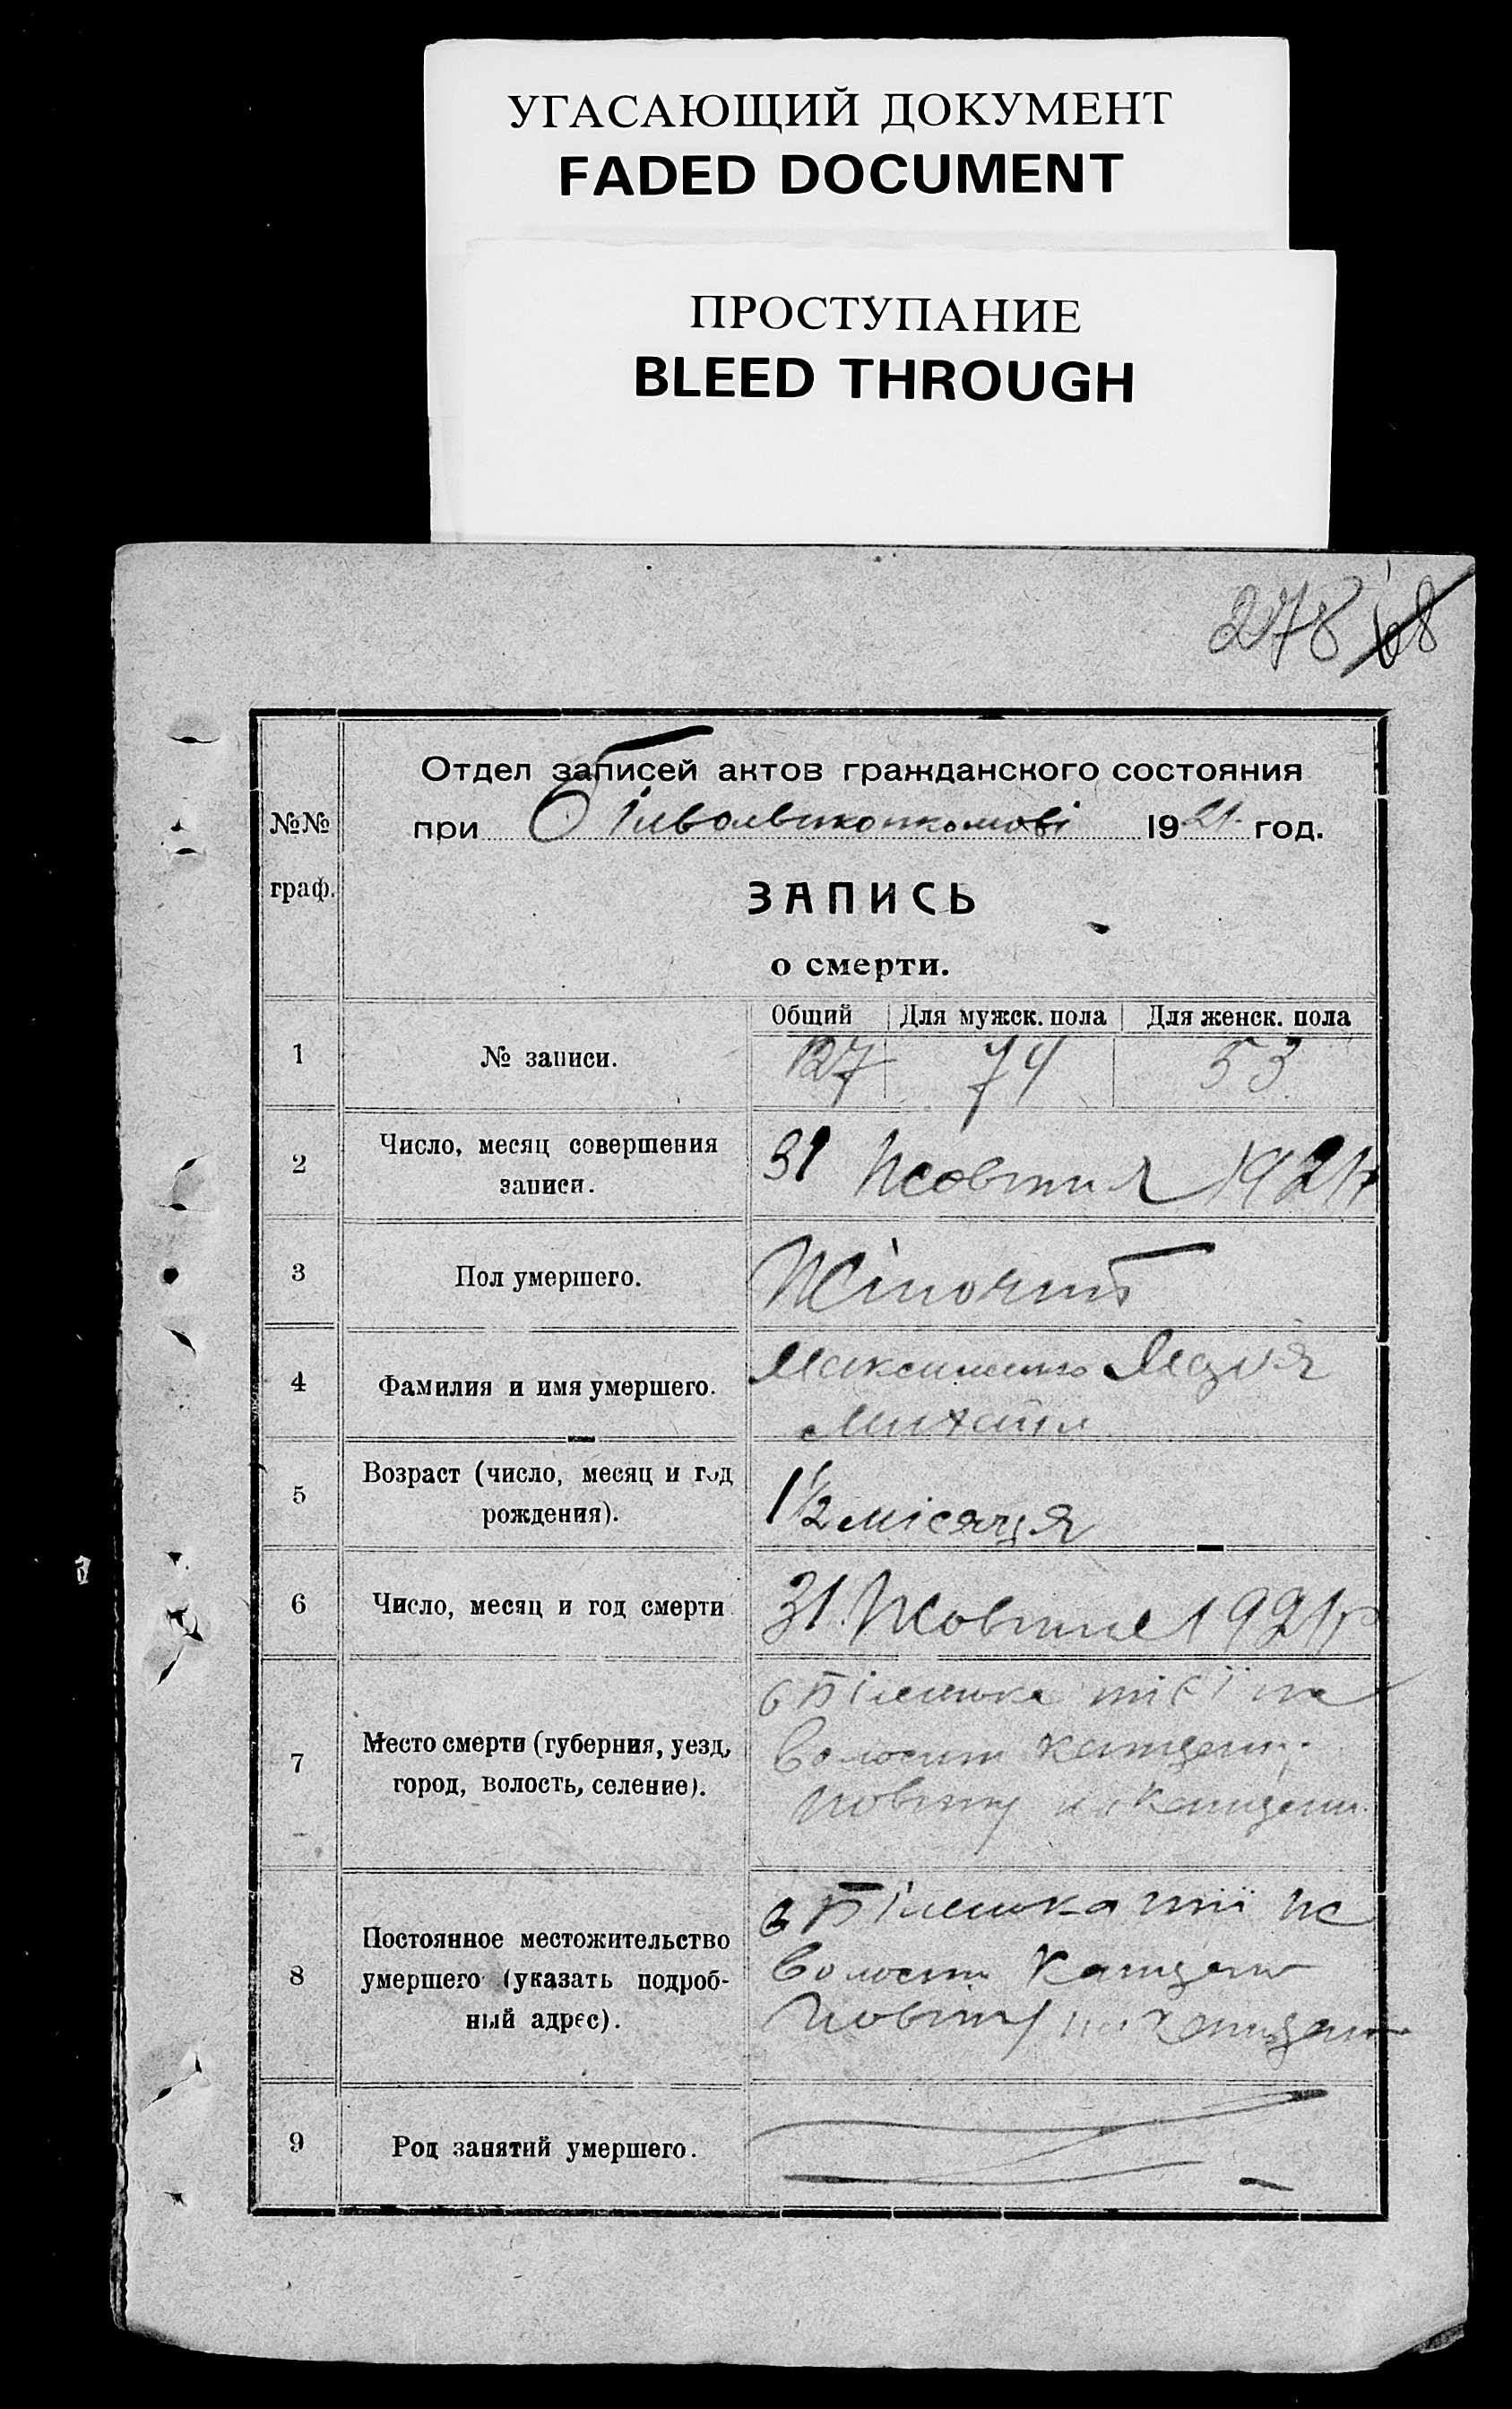 УГАСАЮЩИЙ ДОКУМЕНТ
FADED DOCUMENT
ПРОСТУПАНИЕ
BLEED THROUGH
278 68
№№ граф.
Отдел записей актов гражданского состояния
при 1921 год.
ЗАПИСЬ
о смерти.
Общий Для мужск. пола Для женск. пола
1 № записи. 127 74 53
2 Число, месяц совершения
записи.
31 Жовтня 1921р
3 Пол умершего. Жіночий
4 Фамилия и имя умершего.
Максименко Марія
Михайл
5 Возраст (число, месяц и год
рождения).
1 1/2 місяця
6 Число, месяц и год смерти 31 Жовтня 1921р
7 Место смерти (губерния, уезд,
город, волость, селение).
волости
повіту
8 Постоянное местожительство
умершего (указать подроб-
ный адрес).
волости
повіту
9 Род занятий умершего.